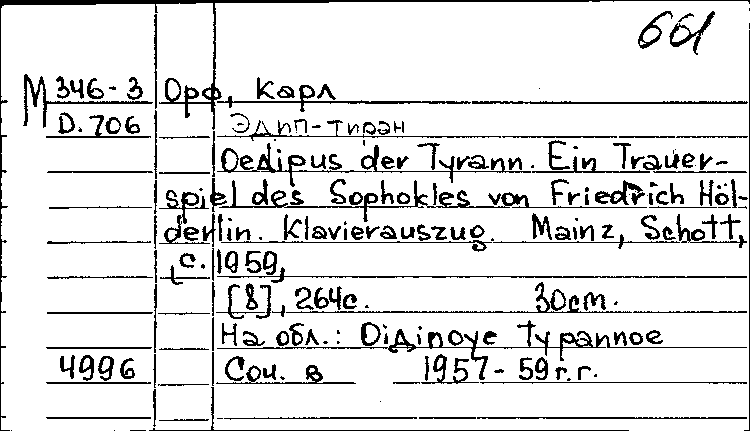 661
М 346-3 Орф, Карл
D.706 Эдип-тиран
Oedipus der Tyrann. Ein Trauer-
spiel des Sophokles von Friedrich Höl-
derlin. Klavierauszug. Mainz, Schott,
[c. 1959]
[8], 264с. 30cm.
На обл.: Oiдinoye Typannoe
4996 Соч. в 1957-59г.г.